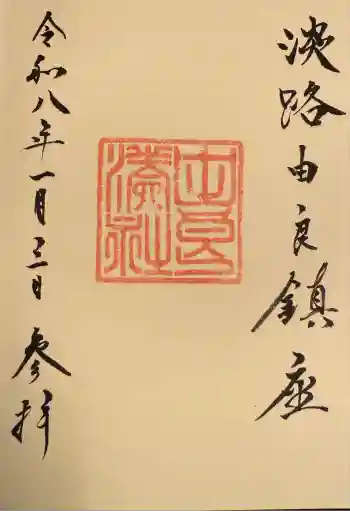 淡路由良鎮座
由良湊神社
令和八年一月三日参拝